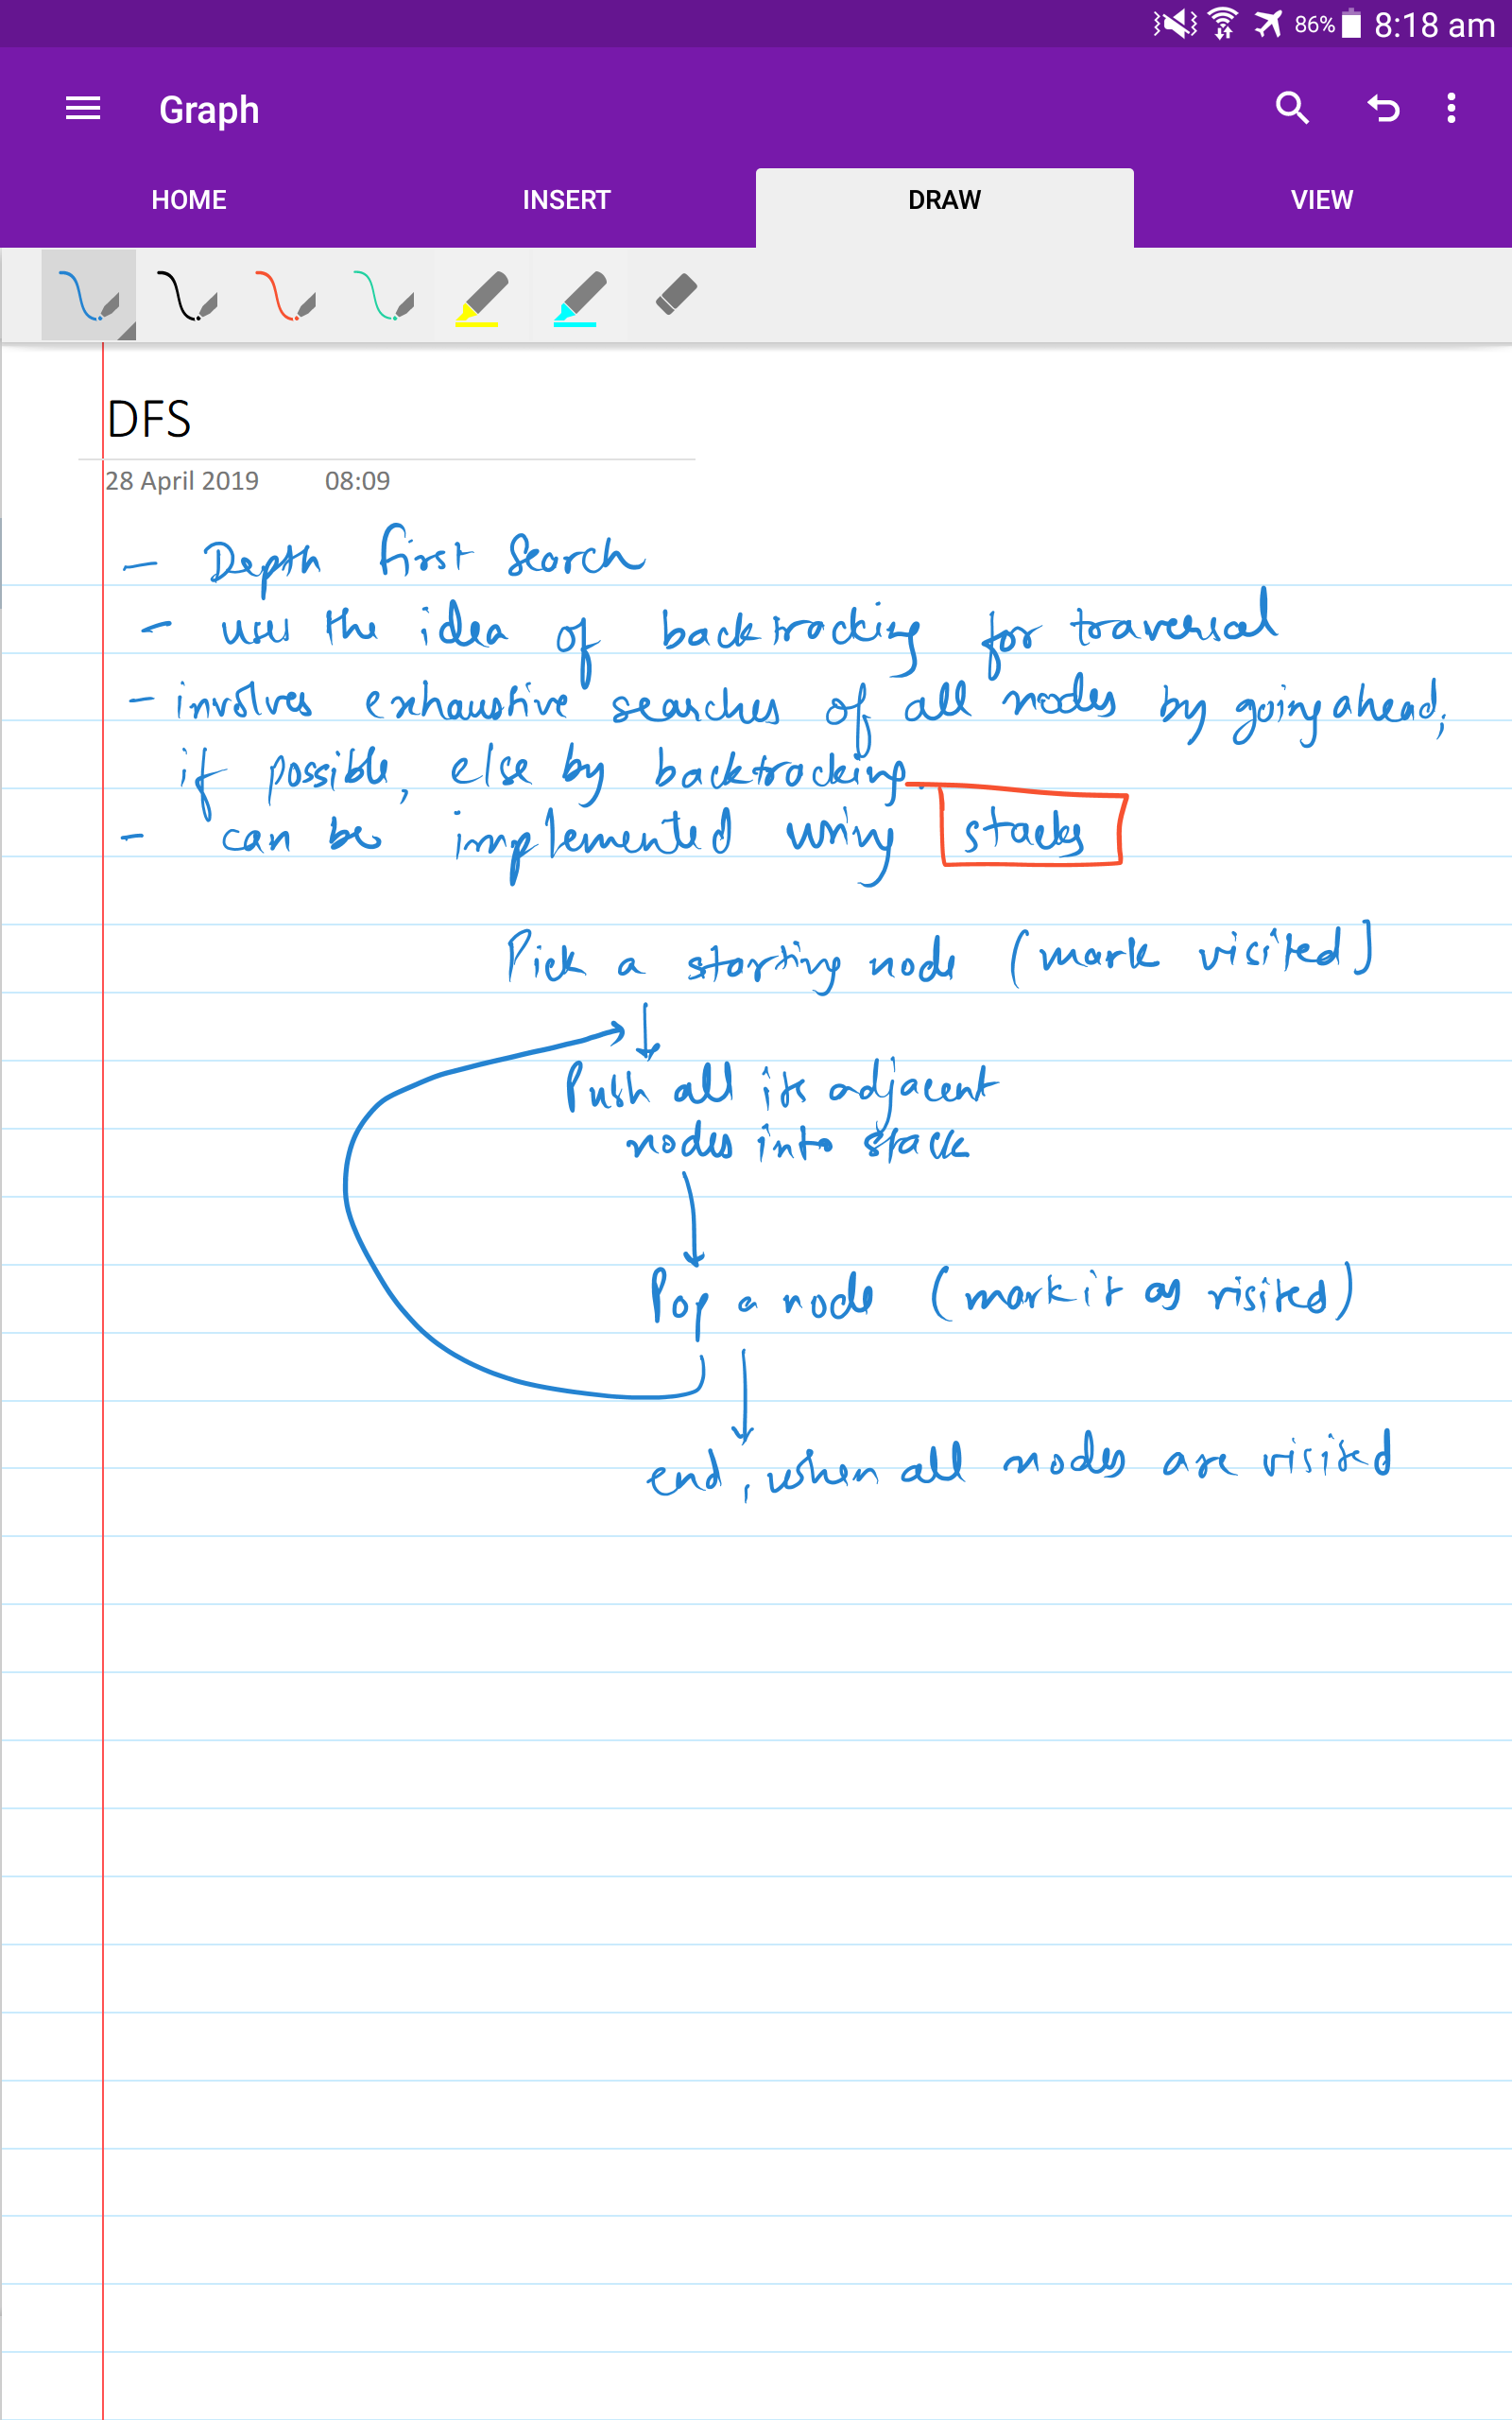 86% 8:18 am
Graph
HOME INSERT DRAW VIEW
DFS
28 April 2019 08:09
- Depth first Search
- uses the idea of backtracking for traversal
- involves exhaustive searches of all nodes by going ahead,
if possible, else by backtracking.
- can be implemented using stacks
Pick a starting node (mark visited)
Push all its adjacent
nodes into stack
Pop a node (mark it as visited)
end, when all nodes are visited